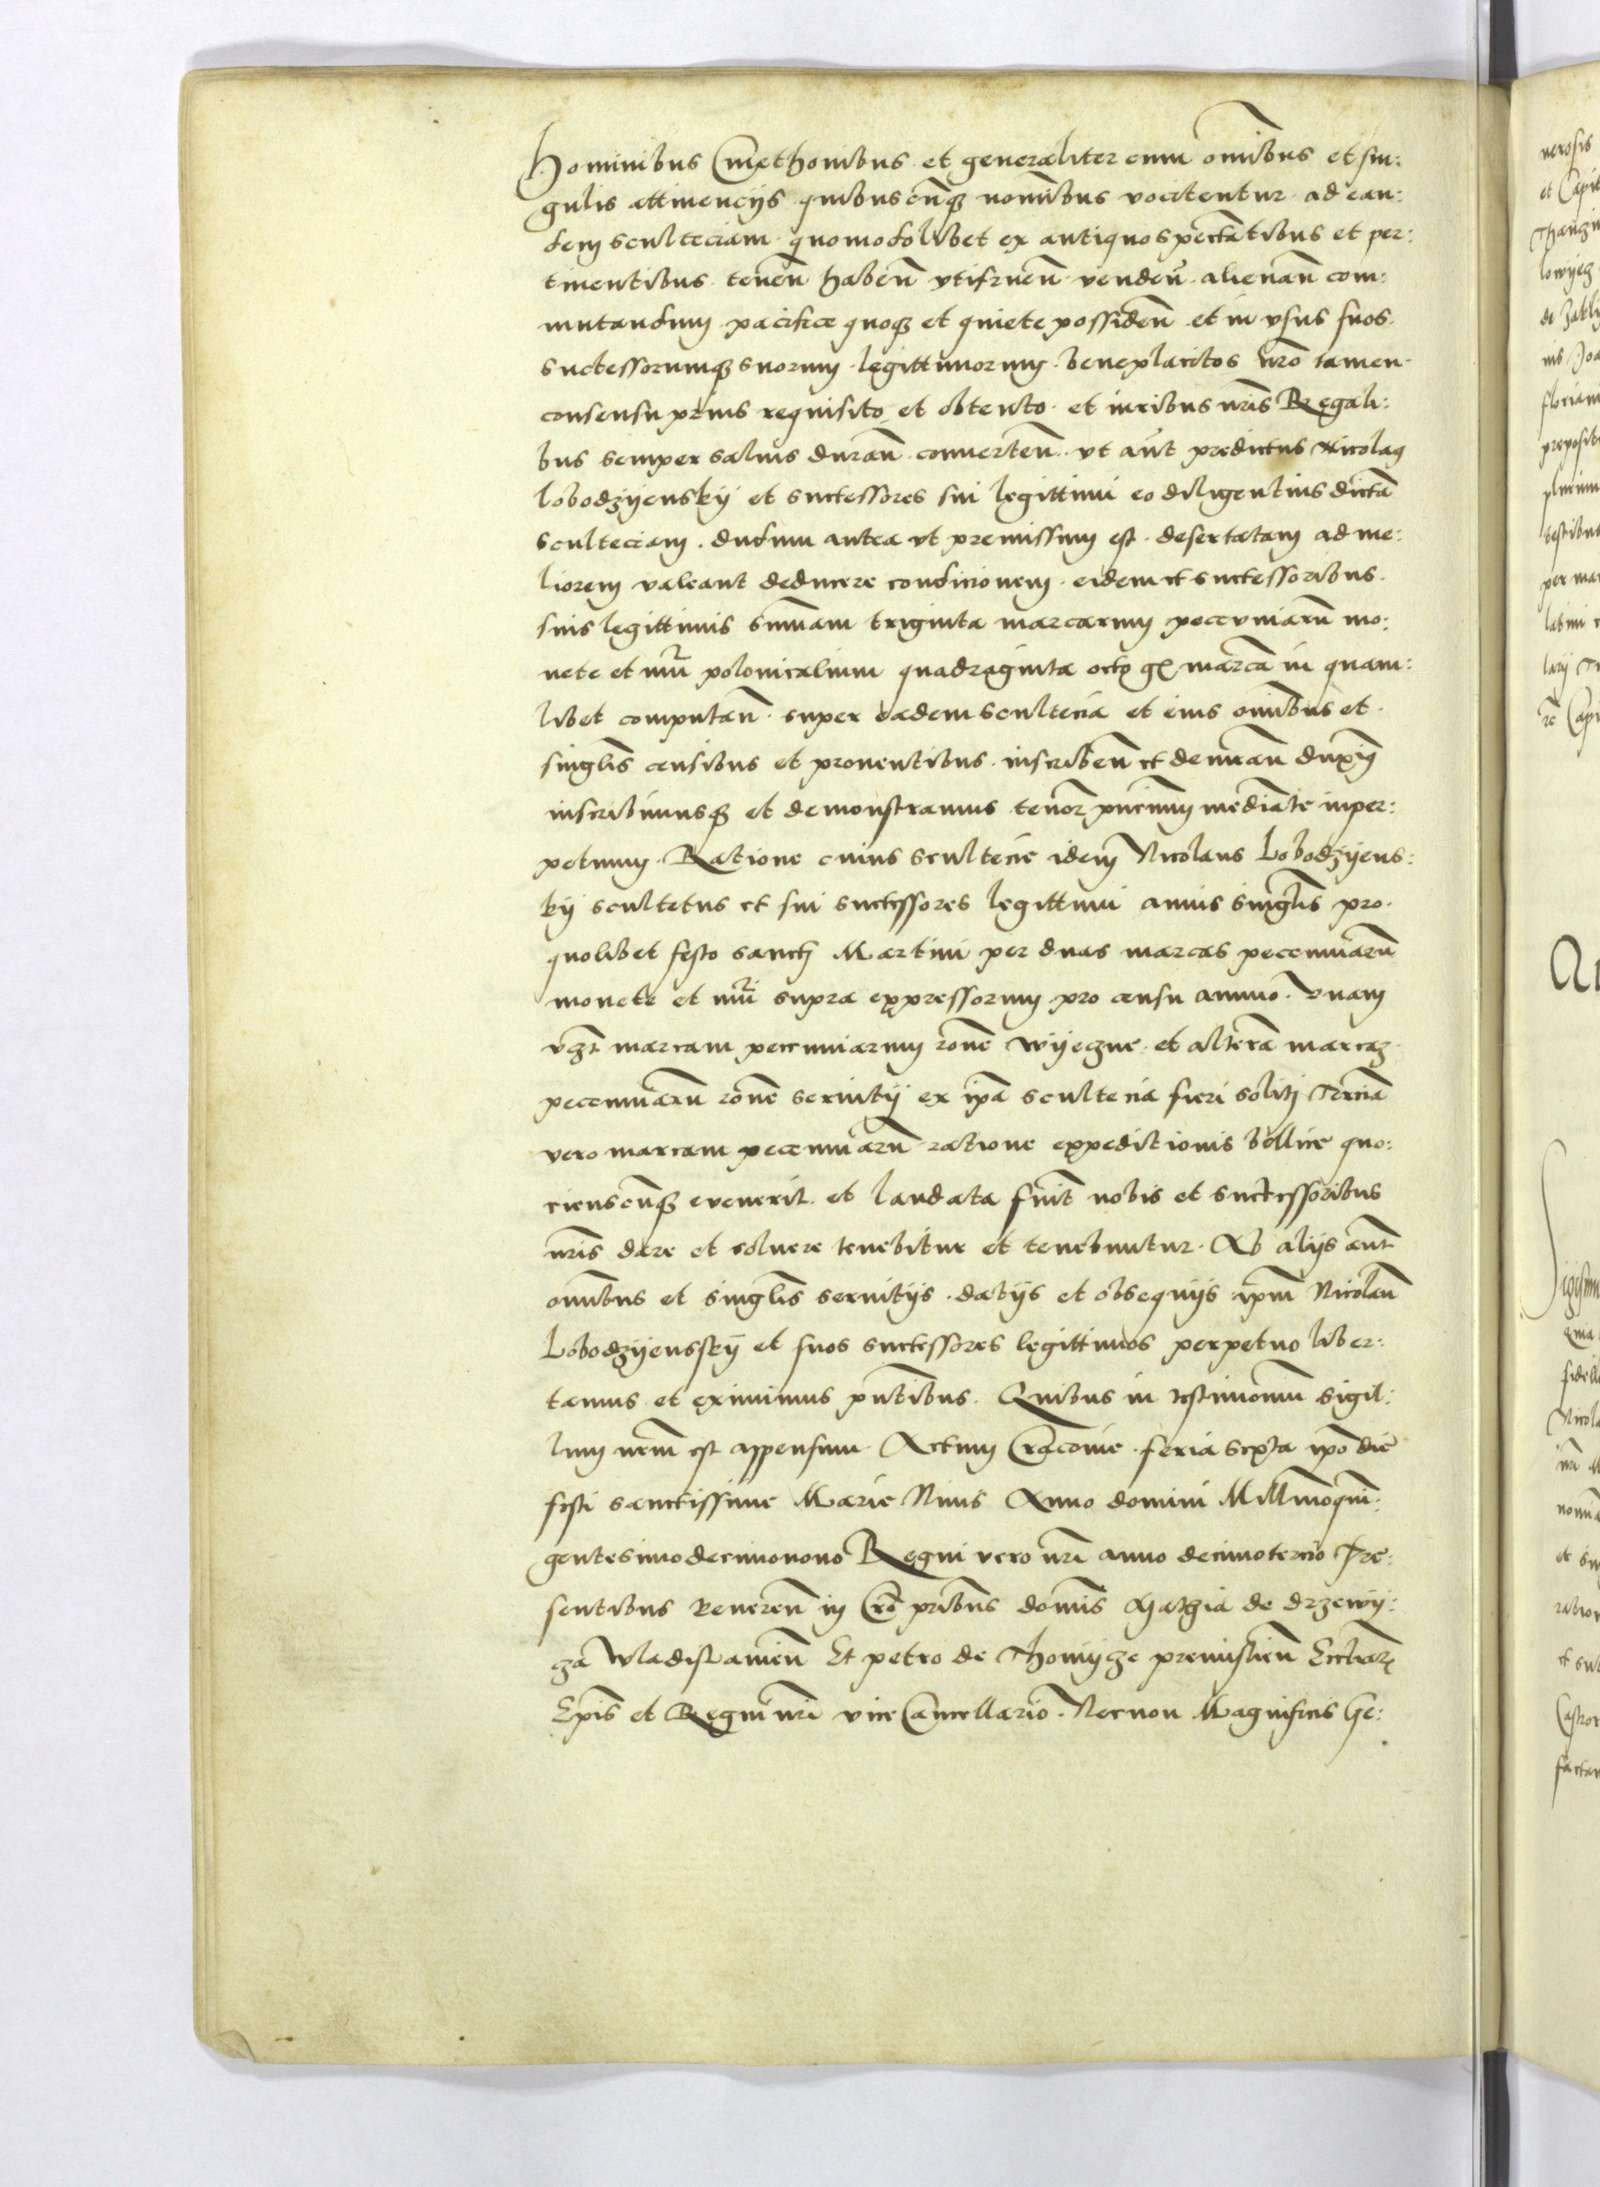 Hominibus Cmethonibus et generaliter cum omībus et sin:
gulis attinencijs quibuscūqȝ nomībus vocitentur ad ean:
dem sculteciam quomodolibet ex antiquo spectātibus et per:
tinentibus tenen̄ haben̄ vtifruen̄ venden̄ alienan̄ com:
mutandum pacifice quoqȝ et quiete possiden̄ et in vsus suos
successorumqȝ suorum legittimorum beneplacitos nr̄o tamen
consensu prius requisito et obtento et iuribus nr̄is Regali:
bus semper saluis duran̄ conuerten̄ vt aūt predictus Nicolaꝯ
Lobodzyensky et successores sui legittimi eo diligentius dictā
sculteciam dudum antea vt premissum est desertatam ad me:
liorem valeant deducere condicionem eidem et successoribus
suis legittimis sum̄am triginta marcarum pecuniarū mo:
nete et nūi polonicalium quadraginta octo gr̄ marcā in quam:
libet computan̄ super eadem scultecia et eius omībus et
singlīs censibus et prouentibus inscriben̄ et demōran̄ duximꝯ
inscribimusqȝ et demonstramus tenor̄ pn̄cium mediāte inper:
petuum Ratione cuius scultecie idem Nicolaus Lobodzyens:
ky scultetus et sui successores legittimi annis singlīs pro
quolibet festo sancti Martini per duas marcas pecuniarū
monete et nūi supra expressorum pro censu annuo vnam
vꝫt marcam pecuniarum rōne wyeczne et alterā marcaȝ
pecuniarū rōne seruitij ex ip̄a scultecia fieri soliti Terciā
vero marcam pecuniarū ratione expeditionis bellice quo:
cienscūqȝ euenerit et laudata fuīt nobis et successoribus
nr̄is dare et soluere tenebitur et tenebuntur Ab alijs aūt
omībus et singlīs seruitijs datijs et obsequijs ip̄m Nicolaū
Lobodzyensky et suos successores legittimos perpetuo liber:
tamus et eximimus pn̄tibus Quibus in testimonium sigil:
lum nr̄m est appensum Actum Cracouie feria sexta ip̄o die
festi sanctissime Marie Niuis Anno domini Millīmoquin:
gentesimodecimonono Regni vero nr̄i anno decimotercio Pre:
sentibus Reueren̄ in Cro pr̄ibus domīs Mathia de drzewy:
cza wladislauien̄ Et petro de Thomycze premislien̄ Eccliār
Epīs et Regni nr̄i vice Cancellario Necnon Magnificis Ge: